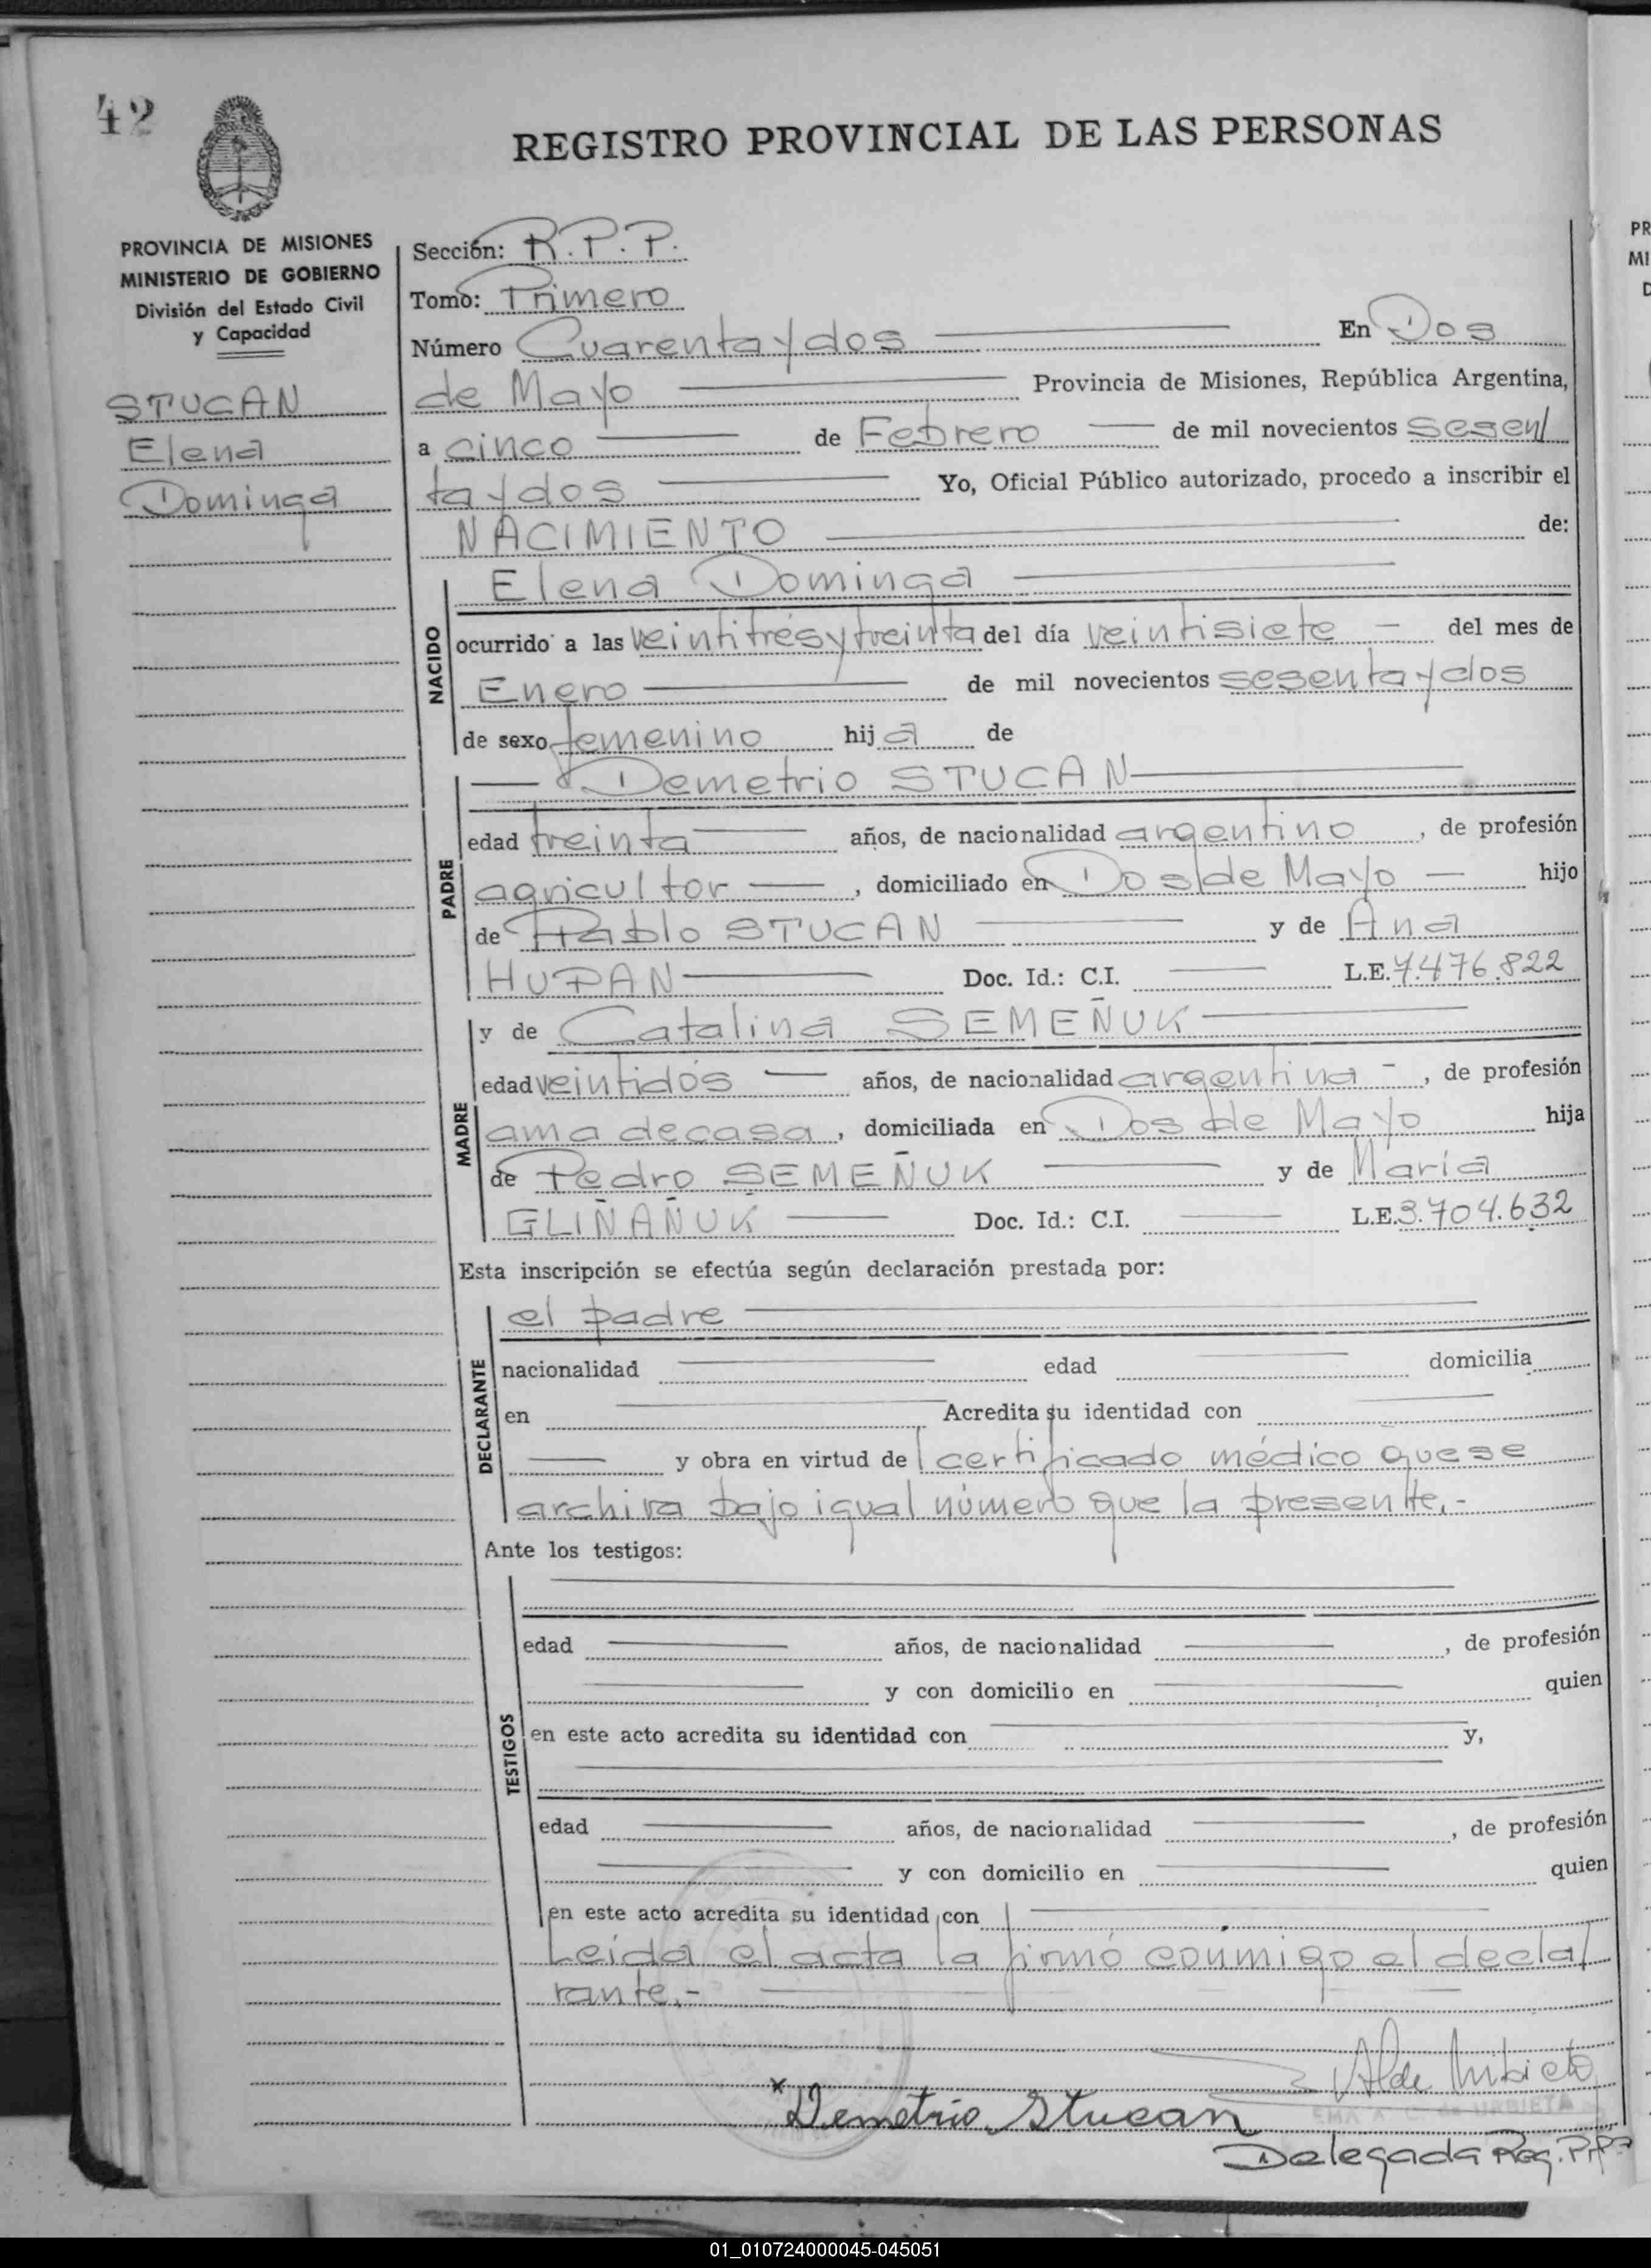 42
REGISTRO PROVINCIAL DE LAS PERSONAS
PROVINCIA DE MISIONES
MINISTERIO DE GOBIERNO
División del Estado Civil
y Capacidad
STUCAN
Elena
Dominga
Sección: R.P.P.
Tomo: Primero
Número Cuarentaydos En Dos
de Mayo Provincia de Misiones, República Argentina,
a cinco de Febrero de mil novecientos sesen/
taydos Yo, Oficial Público autorizado, procedo a inscribir el
NACIMIENTO de:
NACIDO
Elena Dominga
ocurrido a las veintitrésytreinta del día veintisiete - del mes de
Enero de mil novecientos sesentaydos
de sexo femenino hija de
PADRE
Demetrio STUCAN
edad treinta años, de nacionalidad argentino, de profesión
agricultor, domiciliado en Dos de Mayo hijo
de Pablo STUCAN y de Ana
HUPAN Doc. Id.: C.I. L.E. 7.476.822
MADRE
y de Catalina SEMEÑUK
edad veintidós años, de nacionalidad argentina -, de profesión
ama de casa, domiciliada en Dos de Mayo hija
de Pedro SEMEÑUK y de María
GLIÑAÑUK Doc. Id.: C.I. L.E. 3.704.632
Esta inscripción se efectúa según declaración prestada por:
DECLARANTE
el padre
nacionalidad edad domicilia
en Acredita su identidad con
y obra en virtud del certificado médico que se
archiva bajo igual número que la presente.-
Ante los testigos:
TESTIGOS
edad años, de nacionalidad , de profesión
y con domicilio en quien
en este acto acredita su identidad con y,
edad años, de nacionalidad , de profesión
y con domicilio en quien
en este acto acredita su identidad con
Leída el acta la firmó conmigo el decla/
rante.-
x Demetrio Stucan
URBIETA
Delegada Reg. P.P.
01_010724000045-045051